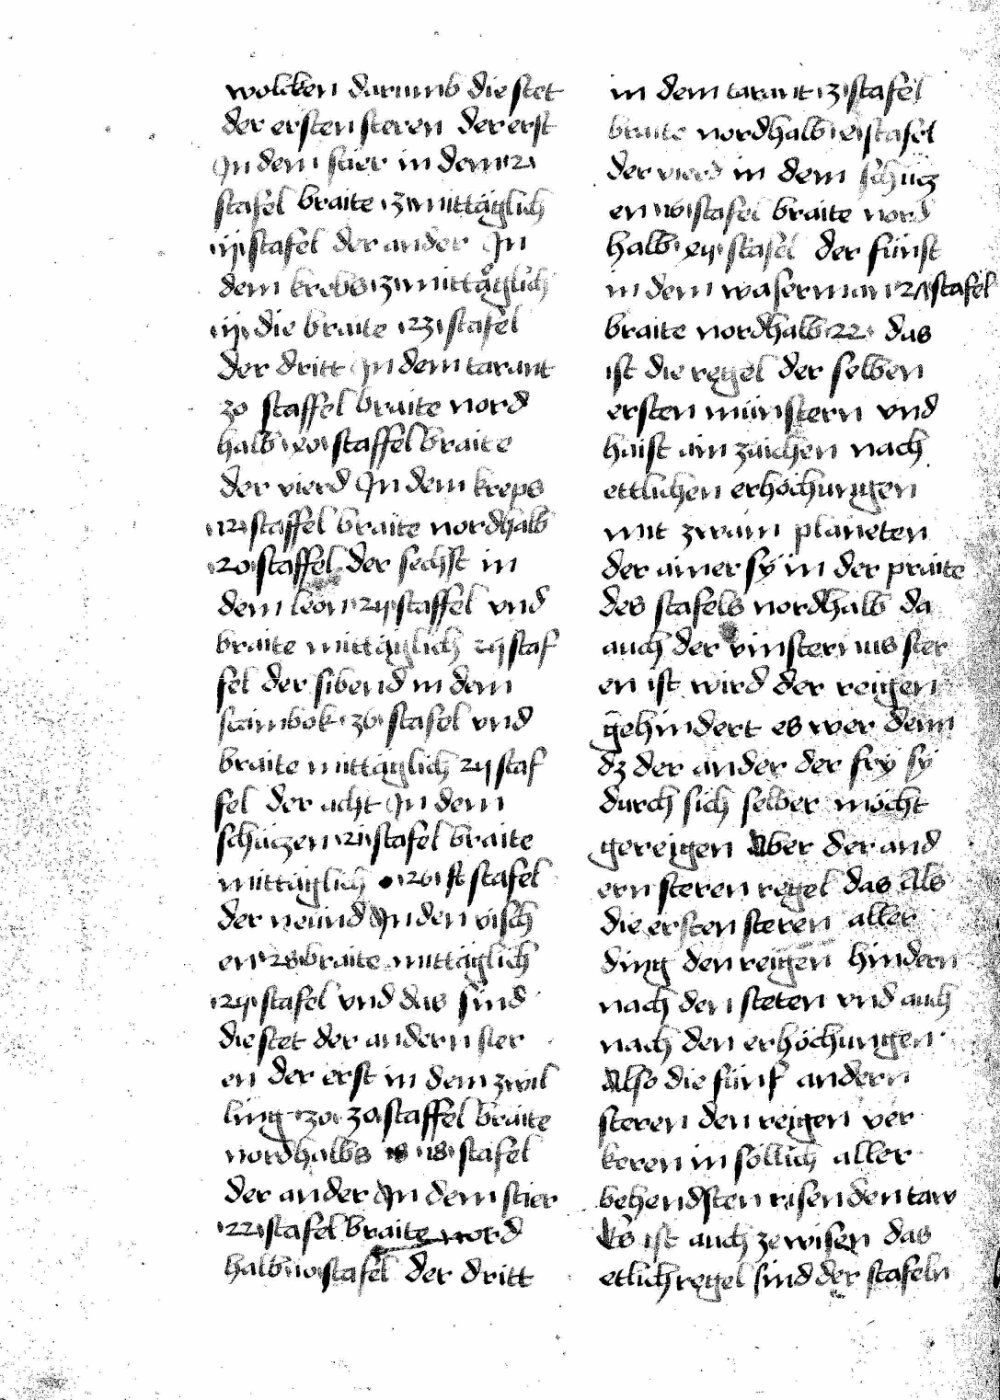 wolcken darumb die stet
der ersten steren der erst
In dem stier in dem 12
stafel braite zmittäglich
iij stafel der ander In
dem krebs zmittäglich
iij die braite 23 stafel
der dritt In dem tarant
zo staffel braite nord
halb staffel braite
der vierd In dem kreps
12 staffel braite nordhalb
20 staffel der sechst in
dem leon 2ij staffel vnd
braite mittäglich 2ij staf
fel der sibend in dem
stainbok z6 stafel vnd
braite mittäglich 2ij staf
fel der acht In dem
schüczen stafel braite
mittäglich stafel
der neünd In den visch
en 28 braite mittäglich
2ij stafel vnd das sind
die stet der andern ster
en der erst in dem zwil
ling zo staffel braite
nordhalbs 18 stafel
der ander In dem stier
22 stafel braite nord
halb stafel der dritt
in dem tarant 13 stafel
braite nordhalb stafel
der vierd in dem schücz
en stafel braite nord
halb stafel der fünft
in dem waserman stafel
braite nordhalb 22 das
ist die regel der selben
ersten münstern vnd
haist ain zaichen nach
ettlichen erhöchungen
mit zwain planeten
der ainer sÿ in der praite
des stafels nordhalb da
auch der vinsternus ster
en ist wird der reigen
gehindert es wer denn
dz der ander der frÿ sÿ
durch sich selber möcht
gereigen Aber der and
ern steren regel das Als
die ersten steren aller
ding den reigen hindern
nach den steten vnd auch
nach den erhöchungen
Also die fünf andern
steren den reigen ver
keren in söllich aller
behendsten risenden taw
Es ist auch ze wisen das
etlich regel sind der stafeln